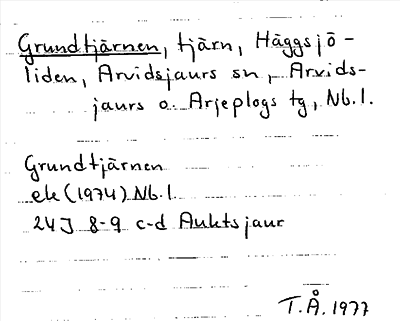 Grundtjärnen, tjärn, Häggsjö-
liden, Arvidsjaurs sn, Arvids-
jaurs o. Arjeplogs tg, Nb.l.
Grundtjärnen
ek (1974) Nb.l.
24J 8-9 c-d Auktsjaur
T.Å. 1977